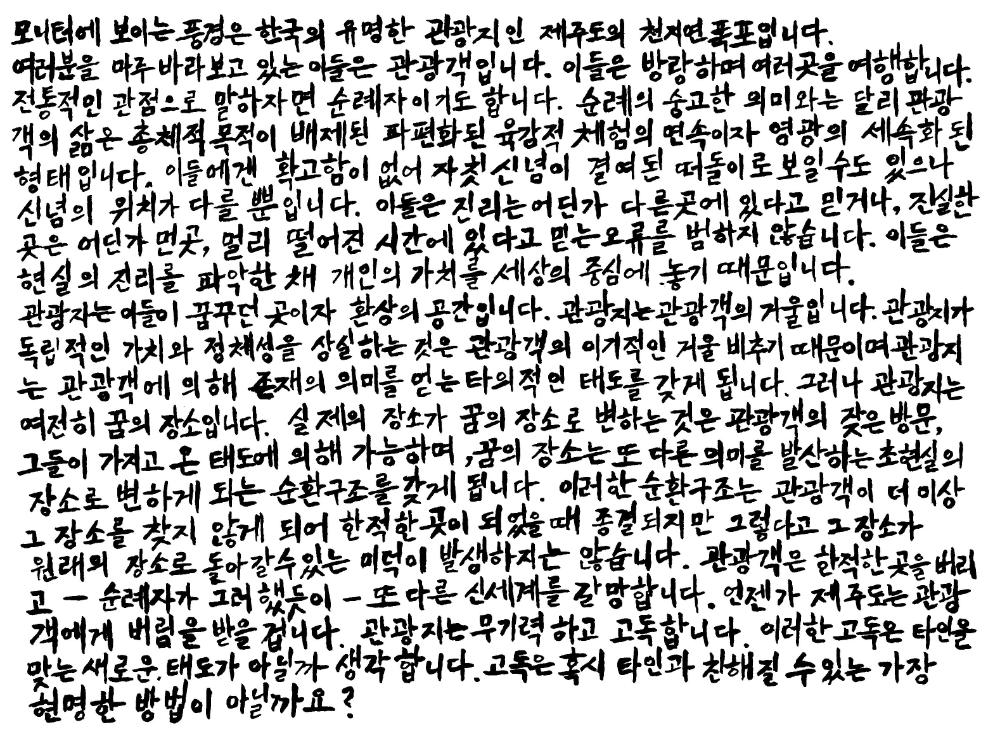 모니터에 보이는 풍경은 한국의 유명한 관광지인 제주도의 천지연 폭포입니다.
여러분을 마주 바라보고 있는 이들은 관광객입니다. 이들은 방랑하며 여러곳을 여행합니다.
전통적인 관점으로 말하자면 순례자이기도 합니다. 순례의 숭고한 의미와는 달리 관광
객의 삶은 총체적 목적이 배제된 파편화된 육감적 체험의 연속이자 영광의 세속화 된
형태입니다. 이들에겐 확고함이 없어 자칫 신념이 결여된 떠돌이로 보일 수도 있으나
신념의 위치가 다를 뿐입니다. 이들은 진리는 어딘가 다른곳에 있다고 믿거나, 진실한
곳은 어딘가 먼곳, 멀리 떨어진 시간에 있다고 믿는 오류를 범하지 않습니다. 이들은
현실의 진리를 파악한 채 개인의 가치를 세상의 중심에 놓기 때문입니다.
관광지는 이들이 꿈꾸던 곳이자 환상의 공간입니다. 관광지는 관광객의 거울입니다. 관광지가
독립적인 가치와 정체성을 상실하는 것은 관광객의 이기적인 거울 비추기 때문이며 관광지
는 관광객에 의해 존재의 의미를 얻는 타의적인 태도를 갖게 됩니다. 그러나 관광지는
여전히 꿈의 장소입니다. 실제의 장소가 꿈의 장소로 변하는 것은 관광객의 잦은 방문,
그들이 가지고 온 태도에 의해 가능하며, 꿈의 장소는 또 다른 의미를 발산하는 초현실의
장소로 변하게 되는 순환구조를 갖게 됩니다. 이러한 순환구조는 관광객이 더 이상
그 장소를 찾지 않게 되어 한적한 곳이 되었을 때 종결되지만 그렇다고 그 장소가
원래의 장소로 돌아갈 수 있는 미덕이 발생하지는 않습니다. 관광객은 한적한 곳을 버리
고 – 순례자가 그러했듯이 – 또 다른 신세계를 갈망합니다. 언젠가 제주도는 관광
객에게 버림을 받을 겁니다. 관광지는 무기력하고 고독합니다. 이러한 고독은 타인을
맞는 새로운 태도가 아닐까 생각합니다. 고독은 혹시 타인과 친해질 수 있는 가장
현명한 방법이 아닐까요?